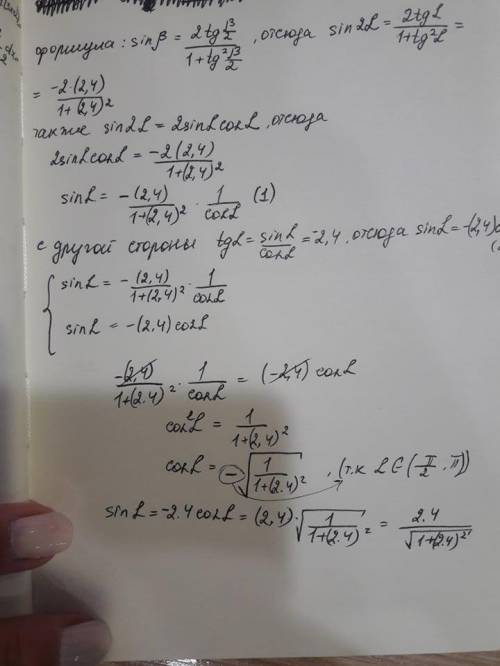 формула: sin β = 2tg β/2 / 1+tg² β/2, отсюда sin2L = 2tgL / 1+tg²L =
= -2·(2,4) / 1+(2,4)²
также sin2L = 2sinLcosL, отсюда
2sinLcosL = -2(2,4) / 1+(2,4)²
sinL = -(2,4) / 1+(2,4)² · 1/cosL (1)
с другой стороны tgL = sinL/cosL = -2,4, отсюда sinL = -(2,4)c
{ sinL = -(2,4) / 1+(2,4)² · 1/cosL
sinL = -(2,4) cosL
-(2,4) / 1+(2.4)² · 1/cosL = (-2,4) cosL
cos²L = 1 / 1+(2,4)²
cosL = - √(1 / 1+(2.4)²), (т.к L ∈ (π/2, π))
sinL = -2.4cosL = (2,4)·√(1 / 1+(2.4)²) = 2.4 / √(1+(2.4)²)